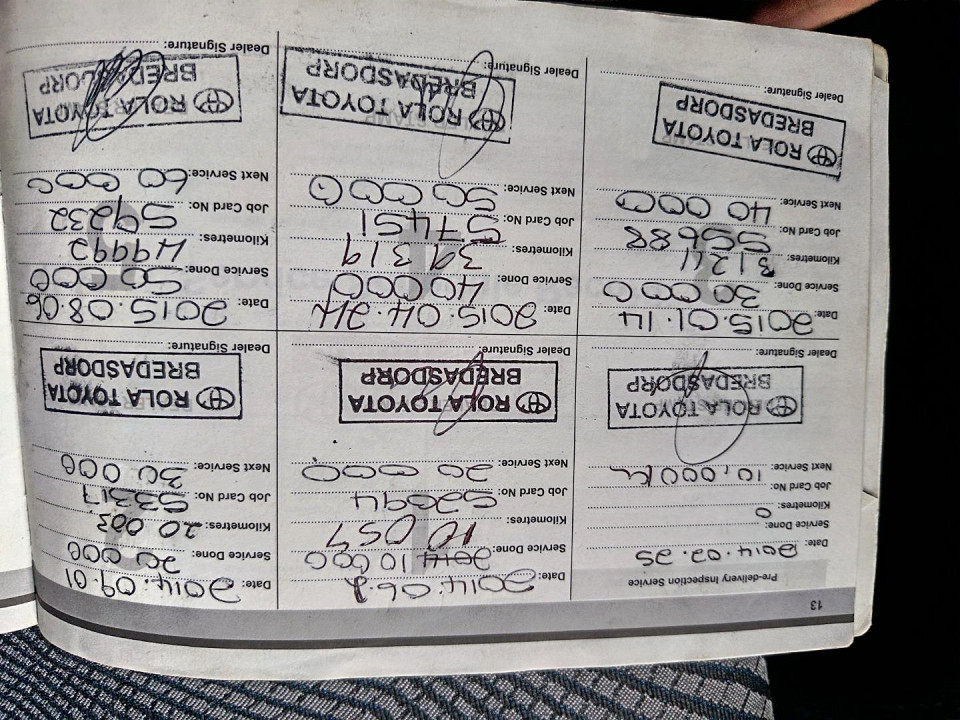 13
Pre-delivery Inspection Service
Date: 2014.02.25
Service Done:
Kilometres: 0
Job Card No:
Next Service: 10,000 Km
ROLA TOYOTA
BREDASDORP
Dealer Signature:
Date: 2014.06.2
Service Done: 2014 10 000
Kilometres: 10 057
Job Card No: 52094
Next Service: 20 000
ROLA TOYOTA
BREDASDORP
Dealer Signature:
Date: 2014.09.01
Service Done: 20 000
Kilometres: 20 003
Job Card No: 53317
Next Service: 30 000
ROLA TOYOTA
BREDASDORP
Dealer Signature:
Date: 2015.01.14
Service Done: 30 000
Kilometres: 31211
Job Card No: 55688
Next Service: 40 000
ROLA TOYOTA
BREDASDORP
Dealer Signature:
Date: 2015.04.24
Service Done: 40 000
Kilometres: 39 319
Job Card No: 57451
Next Service: 50 000
ROLA TOYOTA
BREDASDORP
Dealer Signature:
Date: 2015.08.06
Service Done: 50 000
Kilometres: 49992
Job Card No: 59232
Next Service: 60 000
ROLA TOYOTA
BREDASDORP
Dealer Signature: